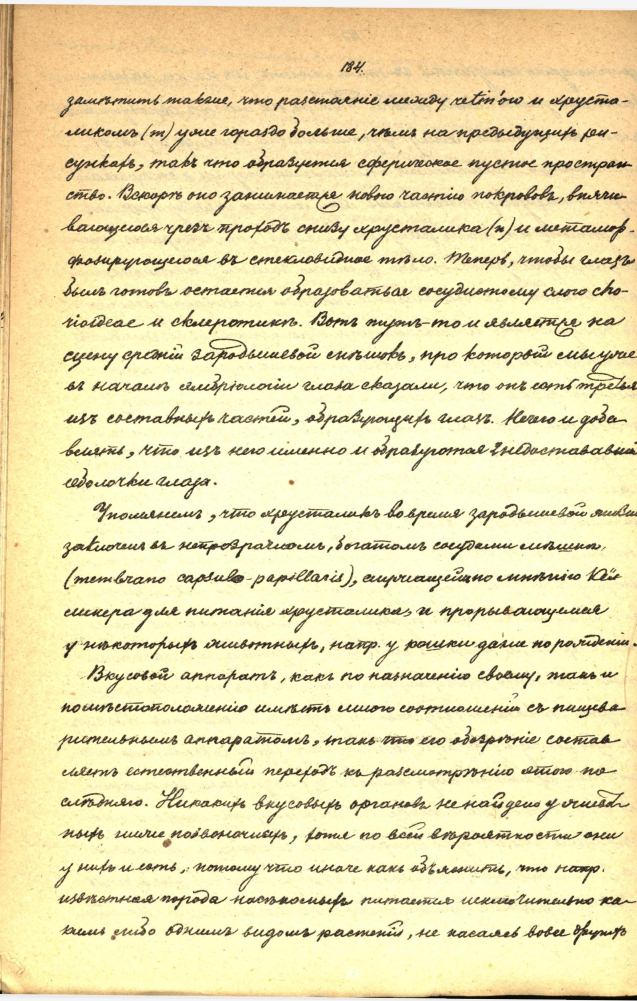 184.
замѣтить также, что разстояніе между retin'ою и хруста-
ликомъ (m) уже гораздо больше, чѣмъ на предыдущихъ ри-
сункахъ, такъ что образуется сферическое пустое простран-
ство. Вскорѣ оно занимается новою частію покрововъ, впячи-
вающеюся чрезъ проходъ снизу хрусталика (n) и метамор-
фозирующеюся въ стекловидное тѣло. Теперь, чтобы глазъ
былъ готовъ остается образоваться сосудистому слою cho-
rioideae и склеротикѣ. Вотъ тутъ-то и является на
сцену средній зародышевой листокъ, про который мы уже
въ началѣ эмбріологіи глаза сказали, что онъ есть третья
изъ составныхъ частей, образующихъ глазъ. Нечего и доба
влять, что изъ него именно и образуются 2 недостававшія
оболочки глаза.
Упомянемъ, что хрусталикъ во время зародышевой жизни
заключенъ въ непрозрачномъ, богатомъ сосудами мѣшкѣ
(membrano capsulo-papillaris), служащей по мнѣнію Кёл
ликера для питанія хрусталика, и прорывающемся
у нѣкоторыхъ животныхъ, напр. у кошки даже по рожденіи.
Вкусовой аппаратъ, какъ по назначенію своему, такъ и
по мѣстоположенію имѣетъ много соотношеній съ пищева
рительнымъ аппаратомъ, такъ что его обозрѣніе состав
ляетъ естественный переходъ къ разсмотрѣнію этого по
слѣдняго. Никакихъ вкусовыхъ органовъ не найдено у живот
ныхъ ниже позвоночныхъ, хотя по всей вѣроятности они
у нихъ и есть, потому что иначе какъ объяснить, что напр.
извѣстная порода насѣкомыхъ питается исключительно ка-
кимъ либо однимъ видомъ растеній, не касаясь вовсе другихъ